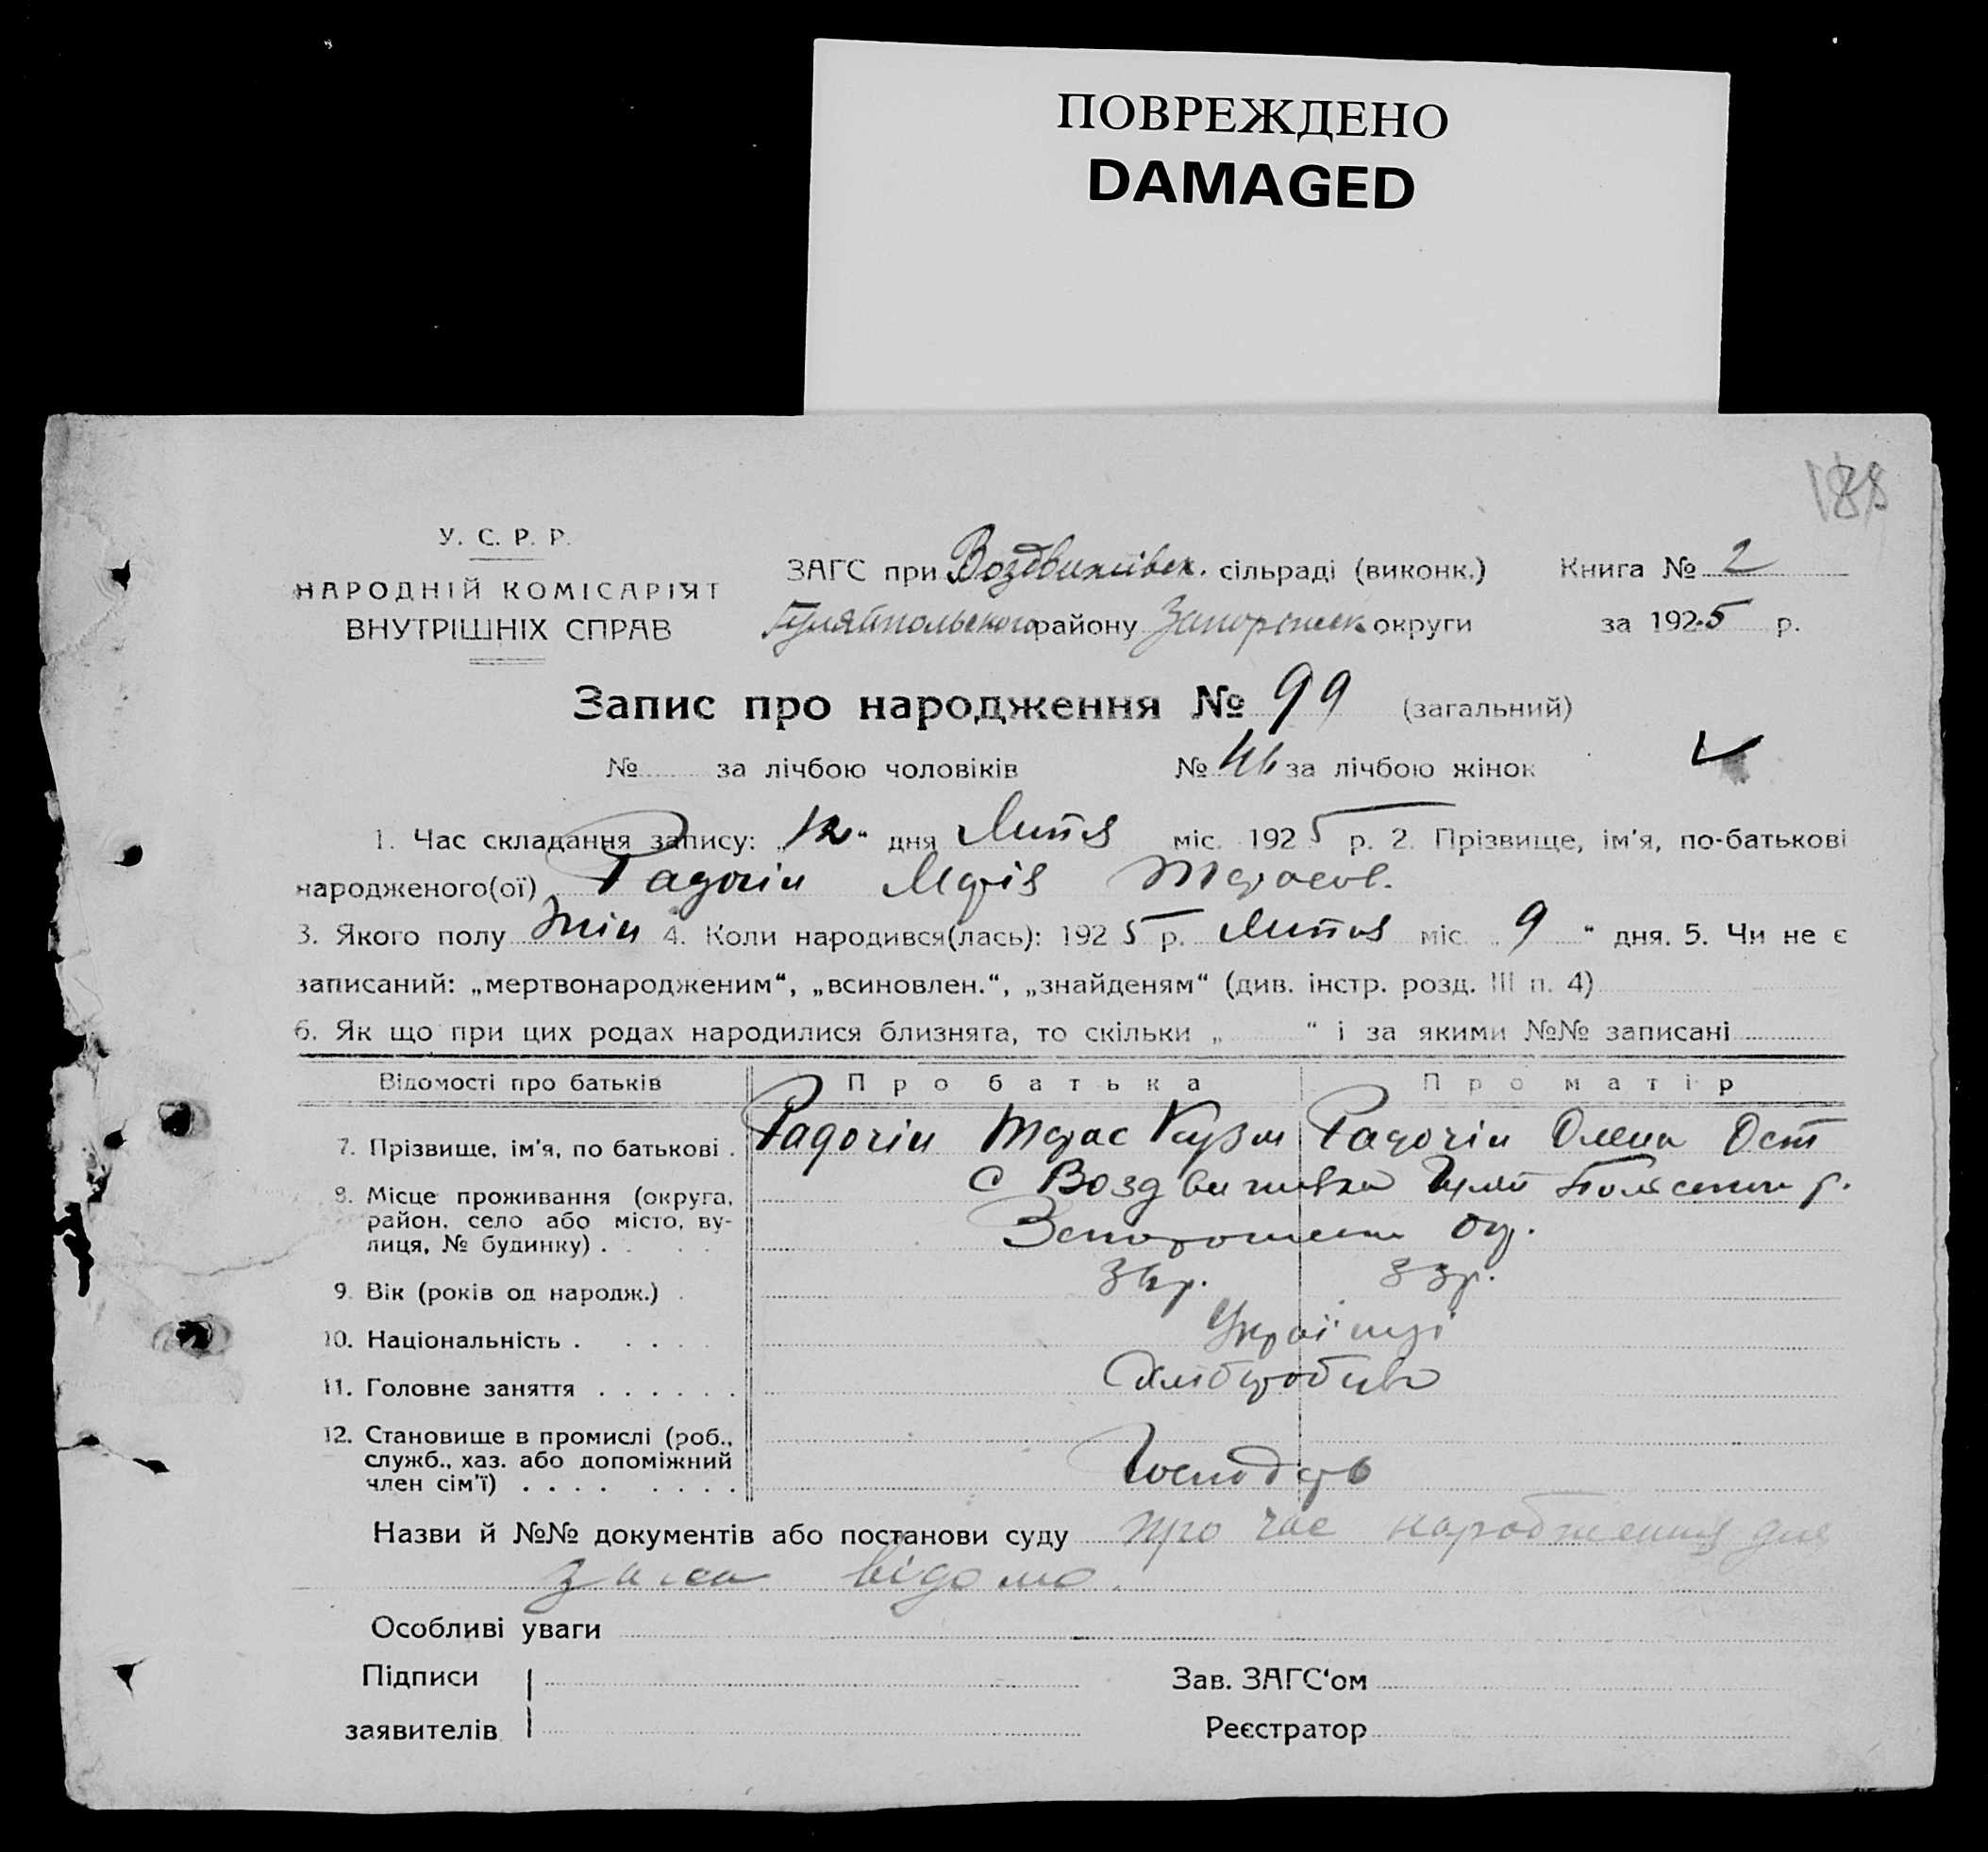 ПОВРЕЖДЕНО
DAMAGED
188
У. С. Р. Р.
НАРОДНІЙ КОМІСАРІЯТ
ВНУТРІШНІХ СПРАВ
ЗАГС при Воздвижівск. сільраді (виконк.) Книга № 2
Гуляйпольського району Запорожск округи за 1925 р.
Запис про народження № 99 (загальний)
№ за лічбою чоловіків № 46 за лічбою жінок
1. Час складання запису: „12“ дня Липня міс. 1925 р. 2. Прізвище, ім'я, по-батькові
народженого(ої) Радочін Марія Тарасов.
3. Якого полу жін 4. Коли народився(лась): 1925 р. Липня міс. „9“ дня. 5. Чи не є
записаний: „мертвонародженим“, „всиновлен.“, „знайденям“ (див. інстр. розд. III п. 4)
6. Як що при цих родах народилися близнята, то скільки „ “ і за якими №№ записані
Відомості про батьків Про батька Про матір
7. Прізвище, ім'я, по батькові . Радочін Тарас Кузм Радочін Олена Ост
8. Місце проживання (округа, район, село або місто, вулиця, № будинку) . с Воздвижівка Гуляй р.
Запорожськ ок.
9. Вік (років од народж.) . 34р. 33р.
10. Національність . Українці
11. Головне заняття . . . . . . Хлібороби
12. Становище в промислі (роб., служб., хаз. або допоміжний член сім'ї) . . . . Господарь
Назви й №№ документів або постанови суду про час народження для
загса відомо.
Особливі уваги
Підписи Зав. ЗАГС‘ом
заявителів Реєстратор